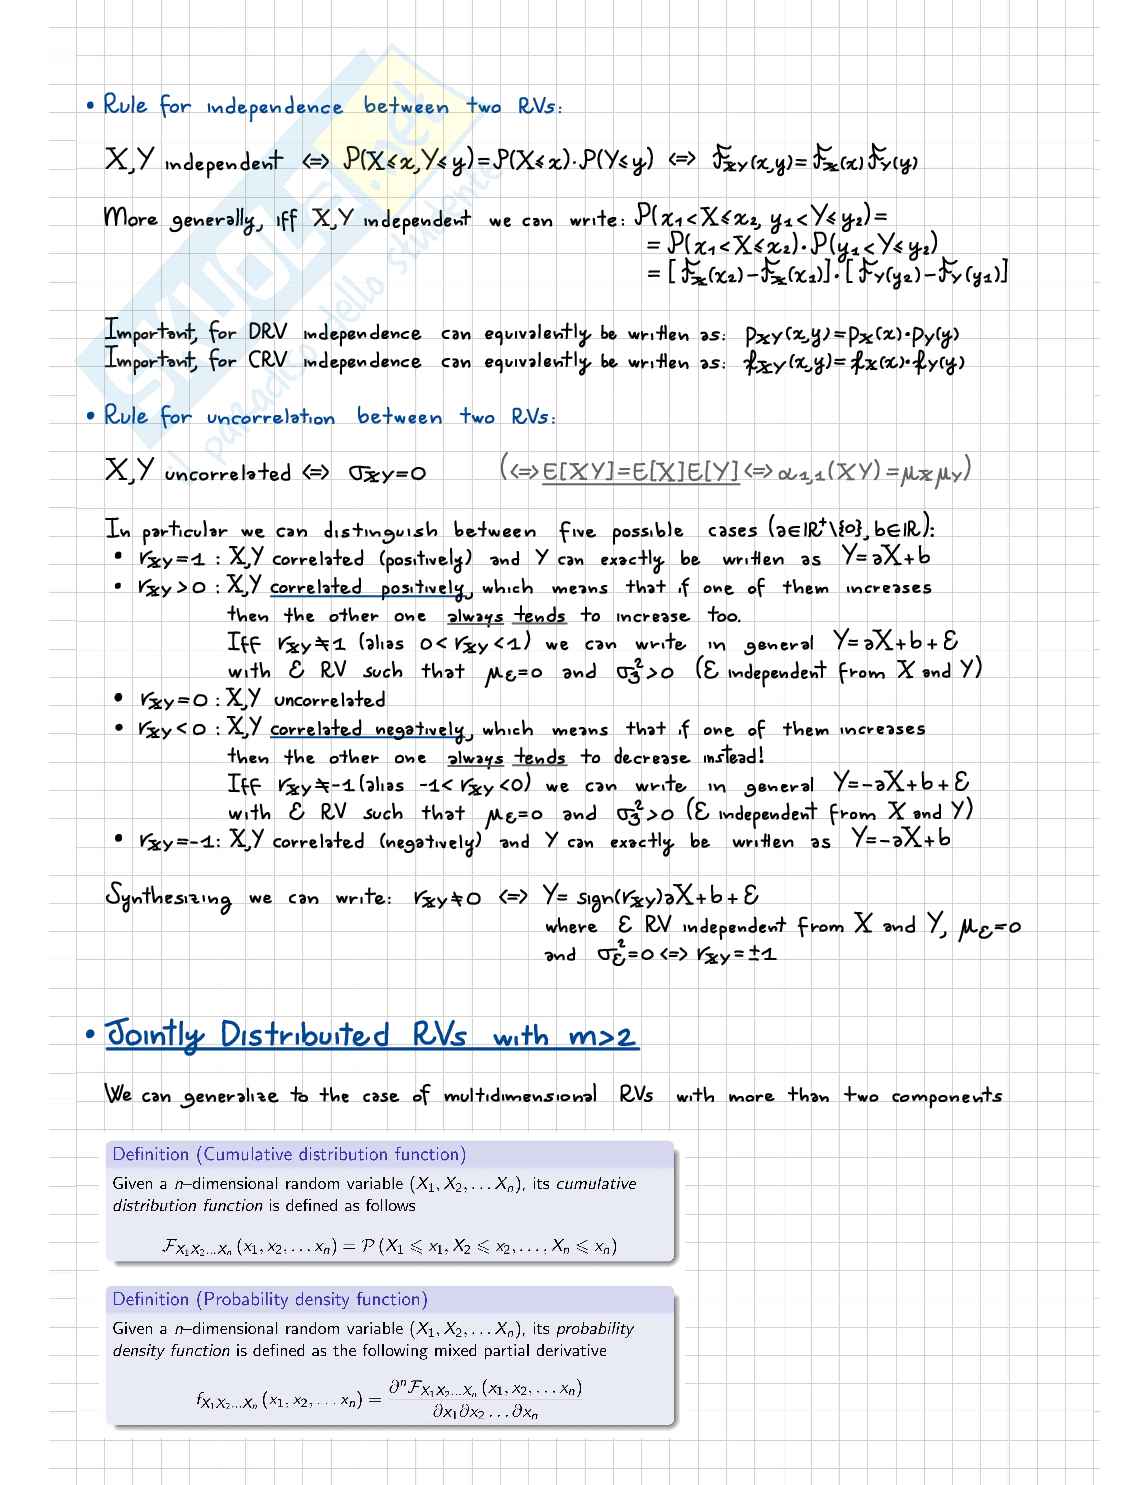 • Rule for independence between two RVs:
X,Y independent ⇔ P(X⩽x,Y⩽y)=P(X⩽x)·P(Y⩽y) ⇔ F_XY(x,y)=F_X(x)F_Y(y)
More generally, iff X,Y independent we can write: P(x₁<X⩽x₂, y₁<Y⩽y₂)=
= P(x₁<X⩽x₂)·P(y₁<Y⩽y₂)
= [F_X(x₂)-F_X(x₁)]·[F_Y(y₂)-F_Y(y₁)]
Important, for DRV independence can equivalently be written as: p_XY(x,y)=p_X(x)·p_Y(y)
Important, for CRV independence can equivalently be written as: f_XY(x,y)=f_X(x)·f_Y(y)
• Rule for uncorrelation between two RVs:
X,Y uncorrelated ⇔ σ_XY=0 (⇔ E[XY]=E[X]E[Y] ⇔ α₁,₁(XY)=μ_X μ_Y)
In particular we can distinguish between five possible cases (a∈ℝ⁺\{0}, b∈ℝ):
• r_XY=1 : X,Y correlated (positively) and Y can exactly be written as Y=aX+b
• r_XY>0 : X,Y correlated positively, which means that if one of them increases
then the other one always tends to increase too.
Iff r_XY≠1 (alias 0<r_XY<1) we can write in general Y=aX+b+ε
with ε RV such that μ_ε=0 and σ²_ε>0 (ε independent from X and Y)
• r_XY=0 : X,Y uncorrelated
• r_XY<0 : X,Y correlated negatively, which means that if one of them increases
then the other one always tends to decrease instead!
Iff r_XY≠-1 (alias -1<r_XY<0) we can write in general Y=-aX+b+ε
with ε RV such that μ_ε=0 and σ²_ε>0 (ε independent from X and Y)
• r_XY=-1: X,Y correlated (negatively) and Y can exactly be written as Y=-aX+b
Synthesizing we can write: r_XY≠0 ⇔ Y= sign(r_XY)aX+b+ε
where ε RV independent from X and Y, μ_ε=0
and σ²_ε=0 ⇔ r_XY=±1
• Jointly Distribuited RVs with m>2
We can generalize to the case of multidimensional RVs with more than two components
Definition (Cumulative distribution function)
Given a n–dimensional random variable (X₁, X₂, . . . Xₙ), its cumulative
distribution function is defined as follows
F_X₁X₂...Xₙ (x₁, x₂, . . . xₙ) = P (X₁ ⩽ x₁, X₂ ⩽ x₂, . . . , Xₙ ⩽ xₙ)
Definition (Probability density function)
Given a n–dimensional random variable (X₁, X₂, . . . Xₙ), its probability
density function is defined as the following mixed partial derivative
f_X₁X₂...Xₙ (x₁, x₂, . . . xₙ) = ∂ⁿF_X₁X₂...Xₙ (x₁, x₂, . . . xₙ) / ∂x₁∂x₂ . . . ∂xₙ
SKUOLA.net
il paradiso dello studente